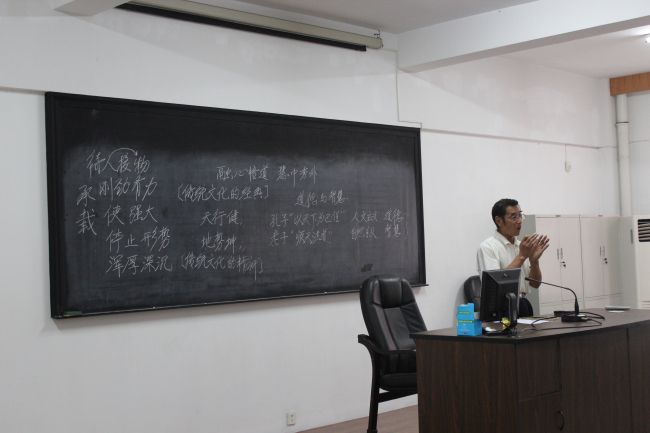 待人接物
融心悟道 慧中秀外
承 刚劲有力 [传统文化的经典] 道德与智慧
载 使强大 天行健 孔子"以天下为己任" 人文主义 道德
停止形势 地势坤 老子"顺天法道" 自然主义 智慧
浑厚深沉 [传统文化的精神]